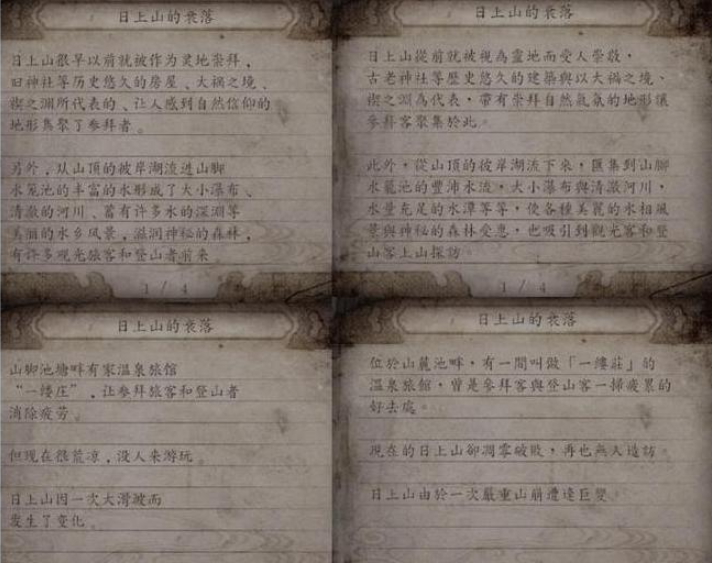 日上山的衰落
日上山很早以前就被作为灵地崇拜，
旧神社等历史悠久的房屋、大祸之境、
禊之渊所代表的、让人感到自然信仰的
地形集聚了参拜者。
另外，从山顶的彼岸湖流进山脚
水笼池的丰富的水形成了大小瀑布、
清澈的河川、蓄有许多水的深渊等
美丽的水乡风景，滋润神秘的森林，
有许多观光旅客和登山者前来。
1 / 4
日上山的衰落
日上山從前就被視為靈地而受人崇敬，
古老神社等歷史悠久的建築與以大禍之境、
禊之淵為代表，帶有崇拜自然氣氛的地形讓
參拜客聚集於此。
此外，從山頂的彼岸湖流下來，匯集到山腳
水籠池的豐沛水流，大小瀑布與清澈河川，
水量充足的水潭等等，使各種美麗的水相風
景與神秘的森林受惠，也吸引到觀光客和登
山客上山探訪。
1 / 4
日上山的衰落
山脚池塘畔有家温泉旅馆
“一缕庄”，让参拜旅客和登山者
消除疲劳。
但现在很荒凉，没人来游玩。
日上山因一次大滑坡而
发生了变化。
日上山的衰落
位於山麓池畔，有一間叫做「一縷莊」的
溫泉旅館，曾是參拜客與登山客一掃疲累的
好去處。
現在的日上山卻凋零破敗，再也無人造訪。
日上山由於一次嚴重山崩遭逢巨變。